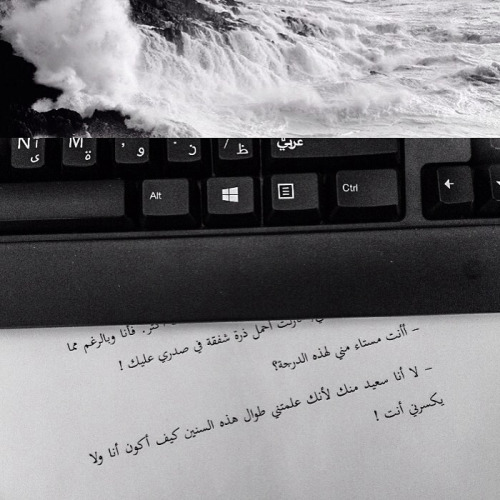 N آ ى M ة , و . ز / ظ عربي
Alt Ctrl
أكثر. فأنا وبالرغم مما
زلت أحمل ذرة شفقة في صدري عليك !
– أأنت مستاء مني لهذه الدرجة؟
– لا أنا سعيد منك لأنك علمتني طوال هذه السنين كيف أكون أنا ولا
يكسرني أنت !